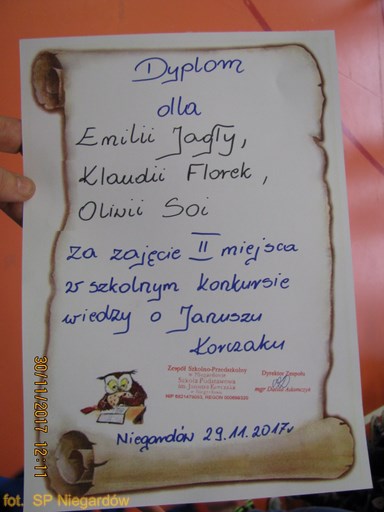 Dyplom
dla
Emilii Jagły,
Klaudii Florek,
Oliwii Soi
za zajęcie II miejsca
w szkolnym konkursie
wiedzy o Januszu
Korczaku
Zespół Szkolno-Przedszkolny
w Niegardowie
Szkoła Podstawowa
im. Janusza Korczaka
Dyrektor Zespołu
mgr Dorota Adamczyk
Niegardów 29.11.2017r
30/11/2017 12:11
fot. SP Niegardów